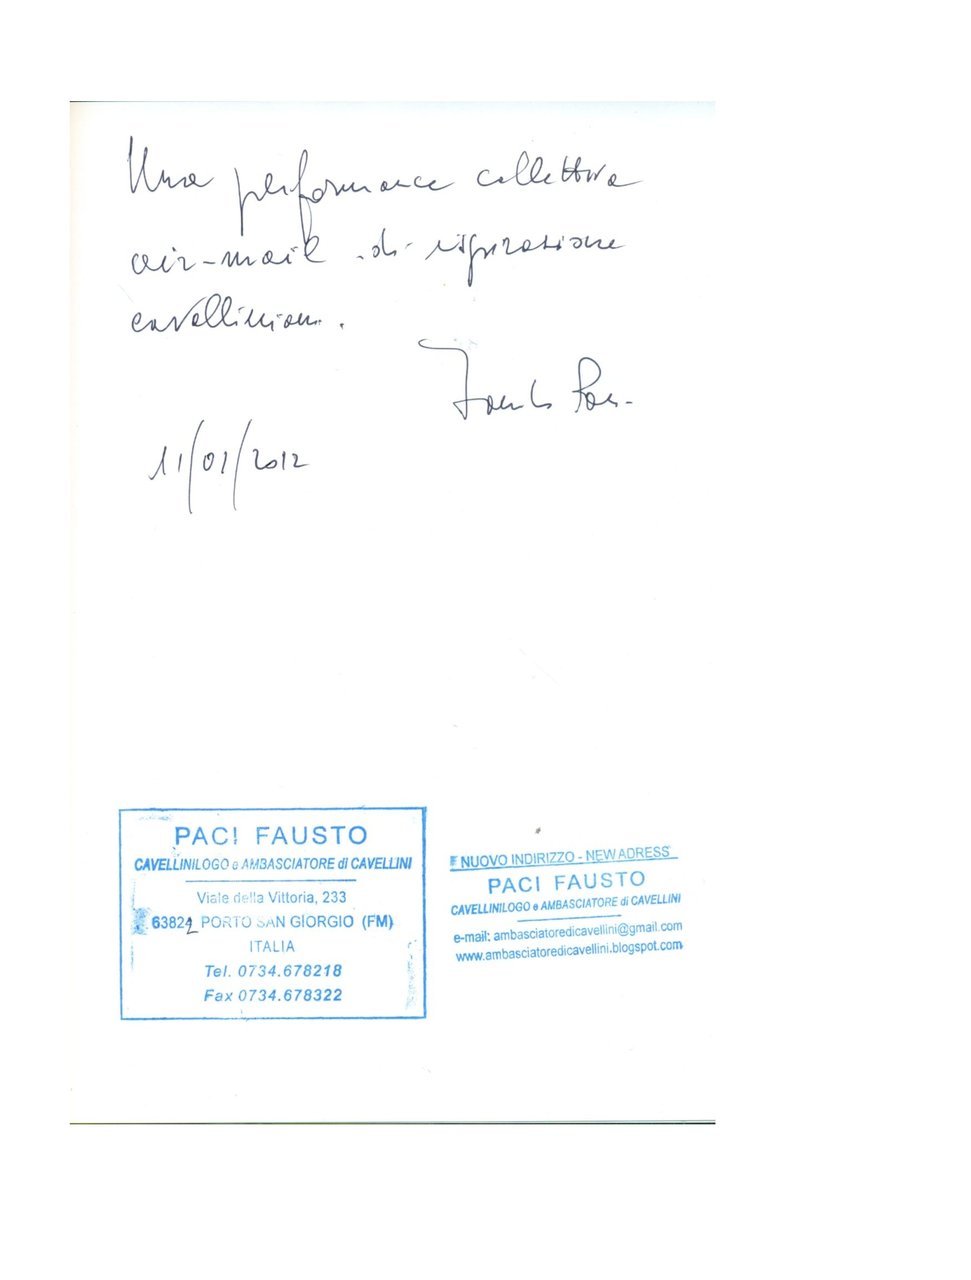 Una performance collettiva
air-mail di ispirazione
cavelliniana.
Fausto Paci
11/01/2012
PACI FAUSTO
CAVELLINILOGO e AMBASCIATORE di CAVELLINI
Viale della Vittoria, 233
63822 PORTO SAN GIORGIO (FM)
ITALIA
Tel. 0734.678218
Fax 0734.678322
NUOVO INDIRIZZO - NEW ADRESS
PACI FAUSTO
CAVELLINILOGO e AMBASCIATORE di CAVELLINI
e-mail: ambasciatoredicavellini@gmail.com
www.ambasciatoredicavellini.blogspot.com